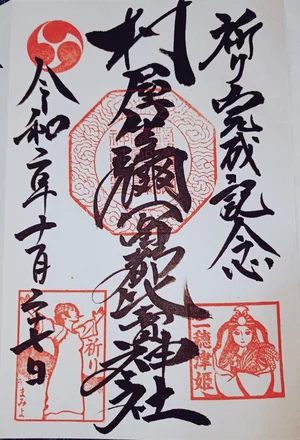 祈り完成記念
村屋坐彌冨都比賣神社
令和二年十月二十七日
三穂津姫
祈り
まみよ